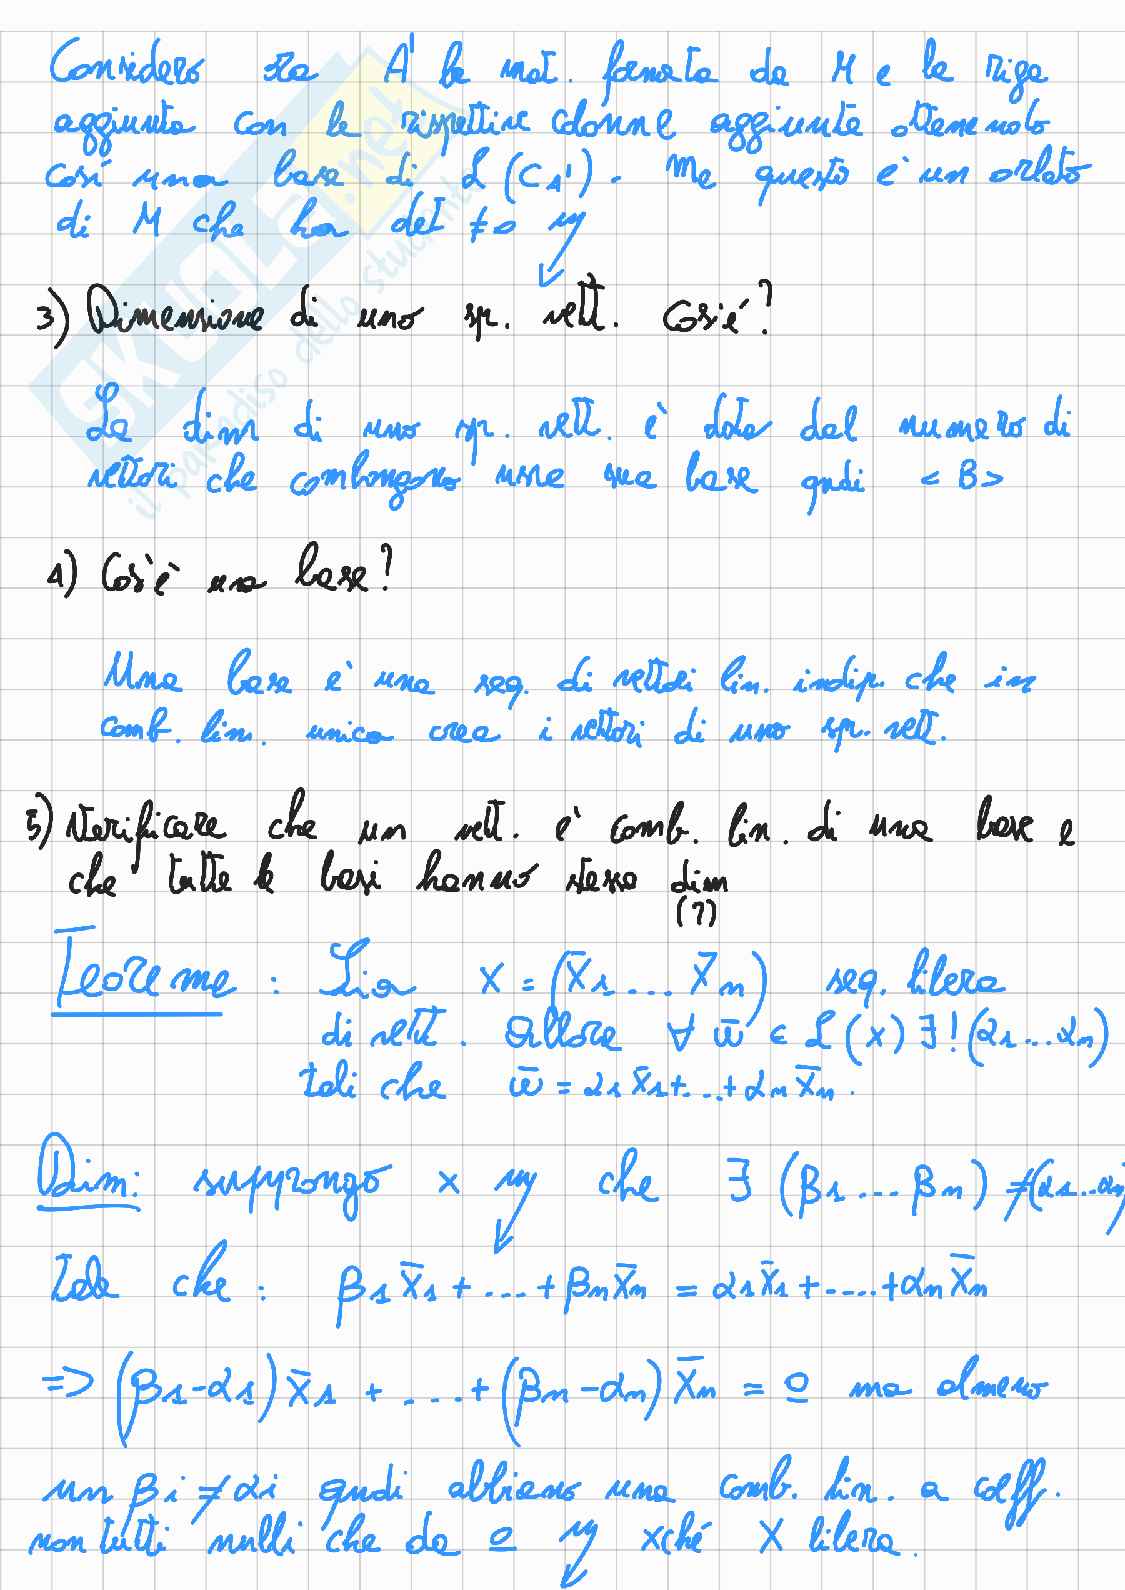 Considero ora A' la mat. formata da M e la riga
aggiunta con le rispettive colonne aggiunte ottenendo
così una base di L(CA'). Ma questo è un orlato
di M che ha det ≠ 0
3) Dimensione di uno sp. vett. Cos'é?
La dim di uno sp. vett. è data dal numero di
vettori che compongono una sua base qndi <B>
4) Cos'è una base?
Una base è una seq. di vettori lin. indip. che in
comb. lin. unica crea i vettori di uno sp. vett.
5) Verificare che un vett. è comb. lin. di una base e
che tutte le basi hanno stessa dim
(7)
Teorema: Sia X = (X̄1 ... X̄n) seq. libera
di vett. Allora ∀ w̄ ∈ L(X) ∃! (α1...αn)
tali che w̄ = α1X̄1+...+αnX̄n.
Dim: suppongo x che ∃ (β1...βn) ≠(α1...αn)
Tale che: β1X̄1+...+βnX̄n = α1X̄1+....+αnX̄n
=> (β1-α1)X̄1 + ...+(βn-αn)X̄n = 0 ma almeno
un βi≠αi qndi abbiamo una comb. lin. a coeff.
non tutti nulli che da 0 xché X libera.
SKUOLA.net
il paradiso dello studente